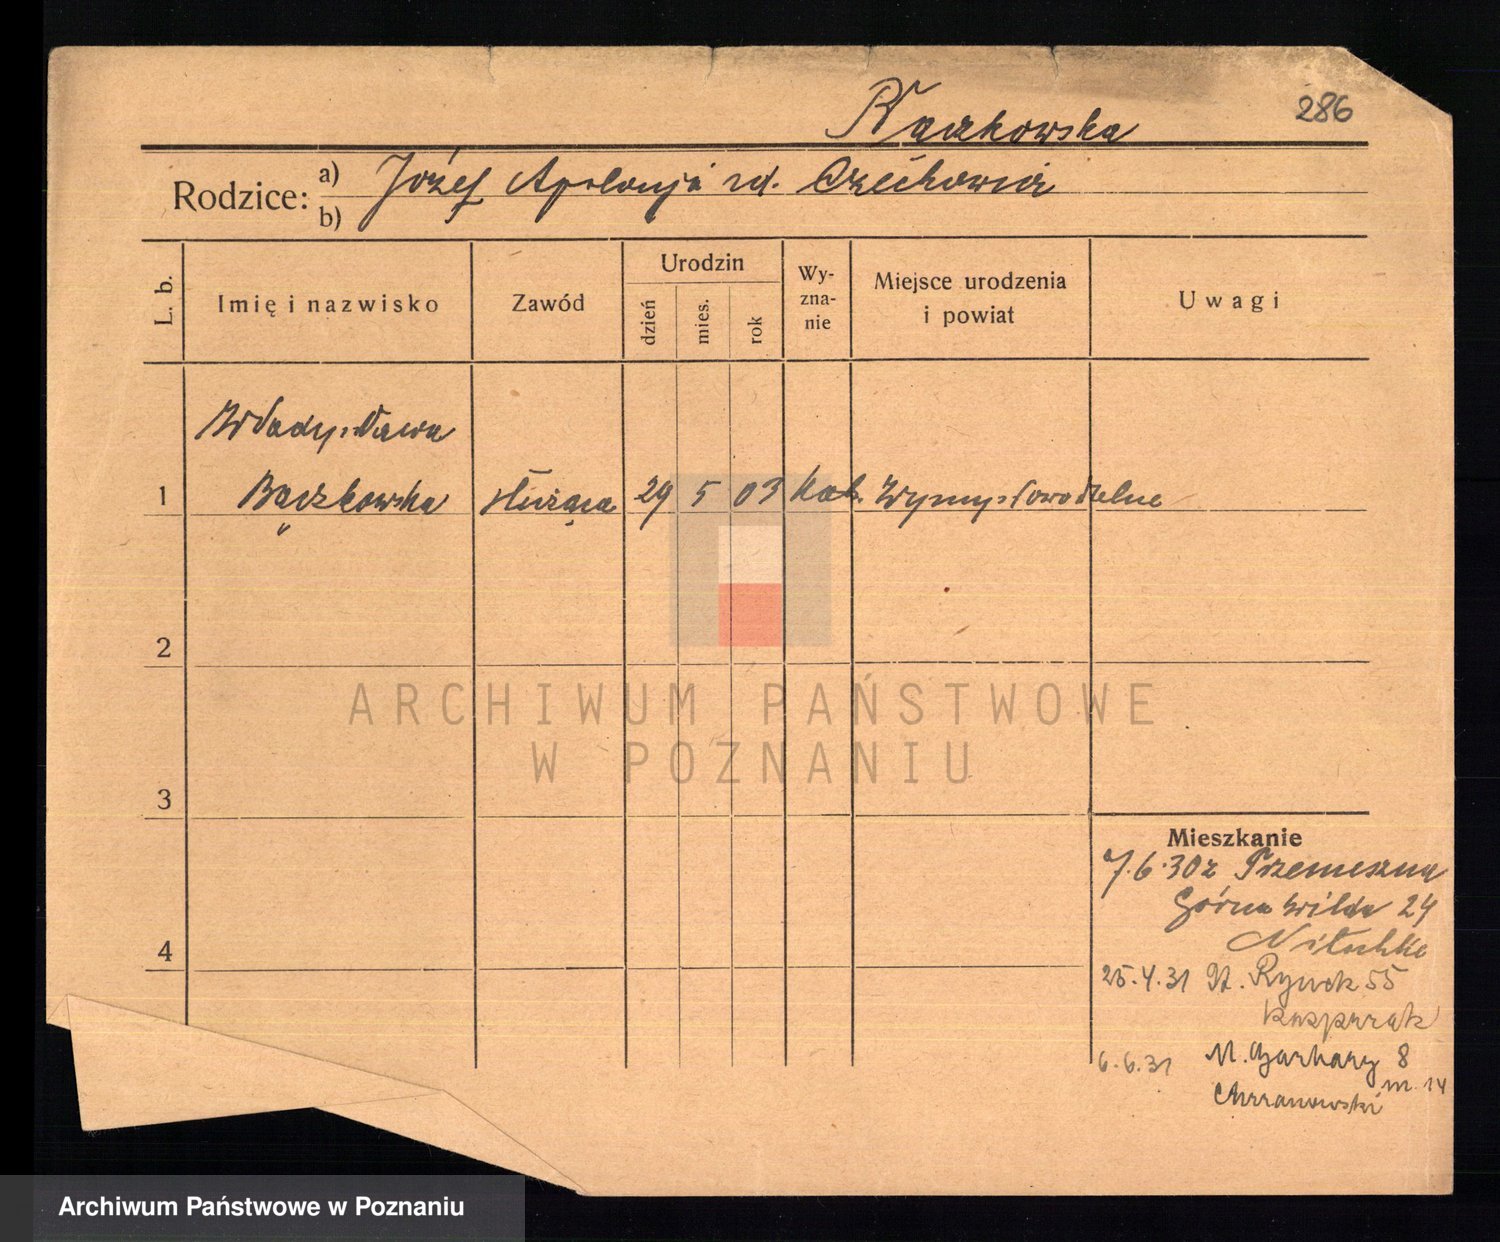 286
Bączkowska
Rodzice: a) Józef Apolonja rd. Czechowicz
b)
L. b. Imię i nazwisko Zawód Urodzin dzień mies. rok Wy-zna-nie Miejsce urodzenia i powiat Uwagi
Władysława
1 Bączkowska służąca 29 5 03 kat.
2
3
4
Mieszkanie
7.6.30 z
Górna Wilda 24
25.4.31 St. Rynek 55
Kasprzak
6.6.31 M. Garbary 8
m. 14
Chrzanowski
ARCHIWUM PAŃSTWOWE
W POZNANIU
Archiwum Państwowe w Poznaniu